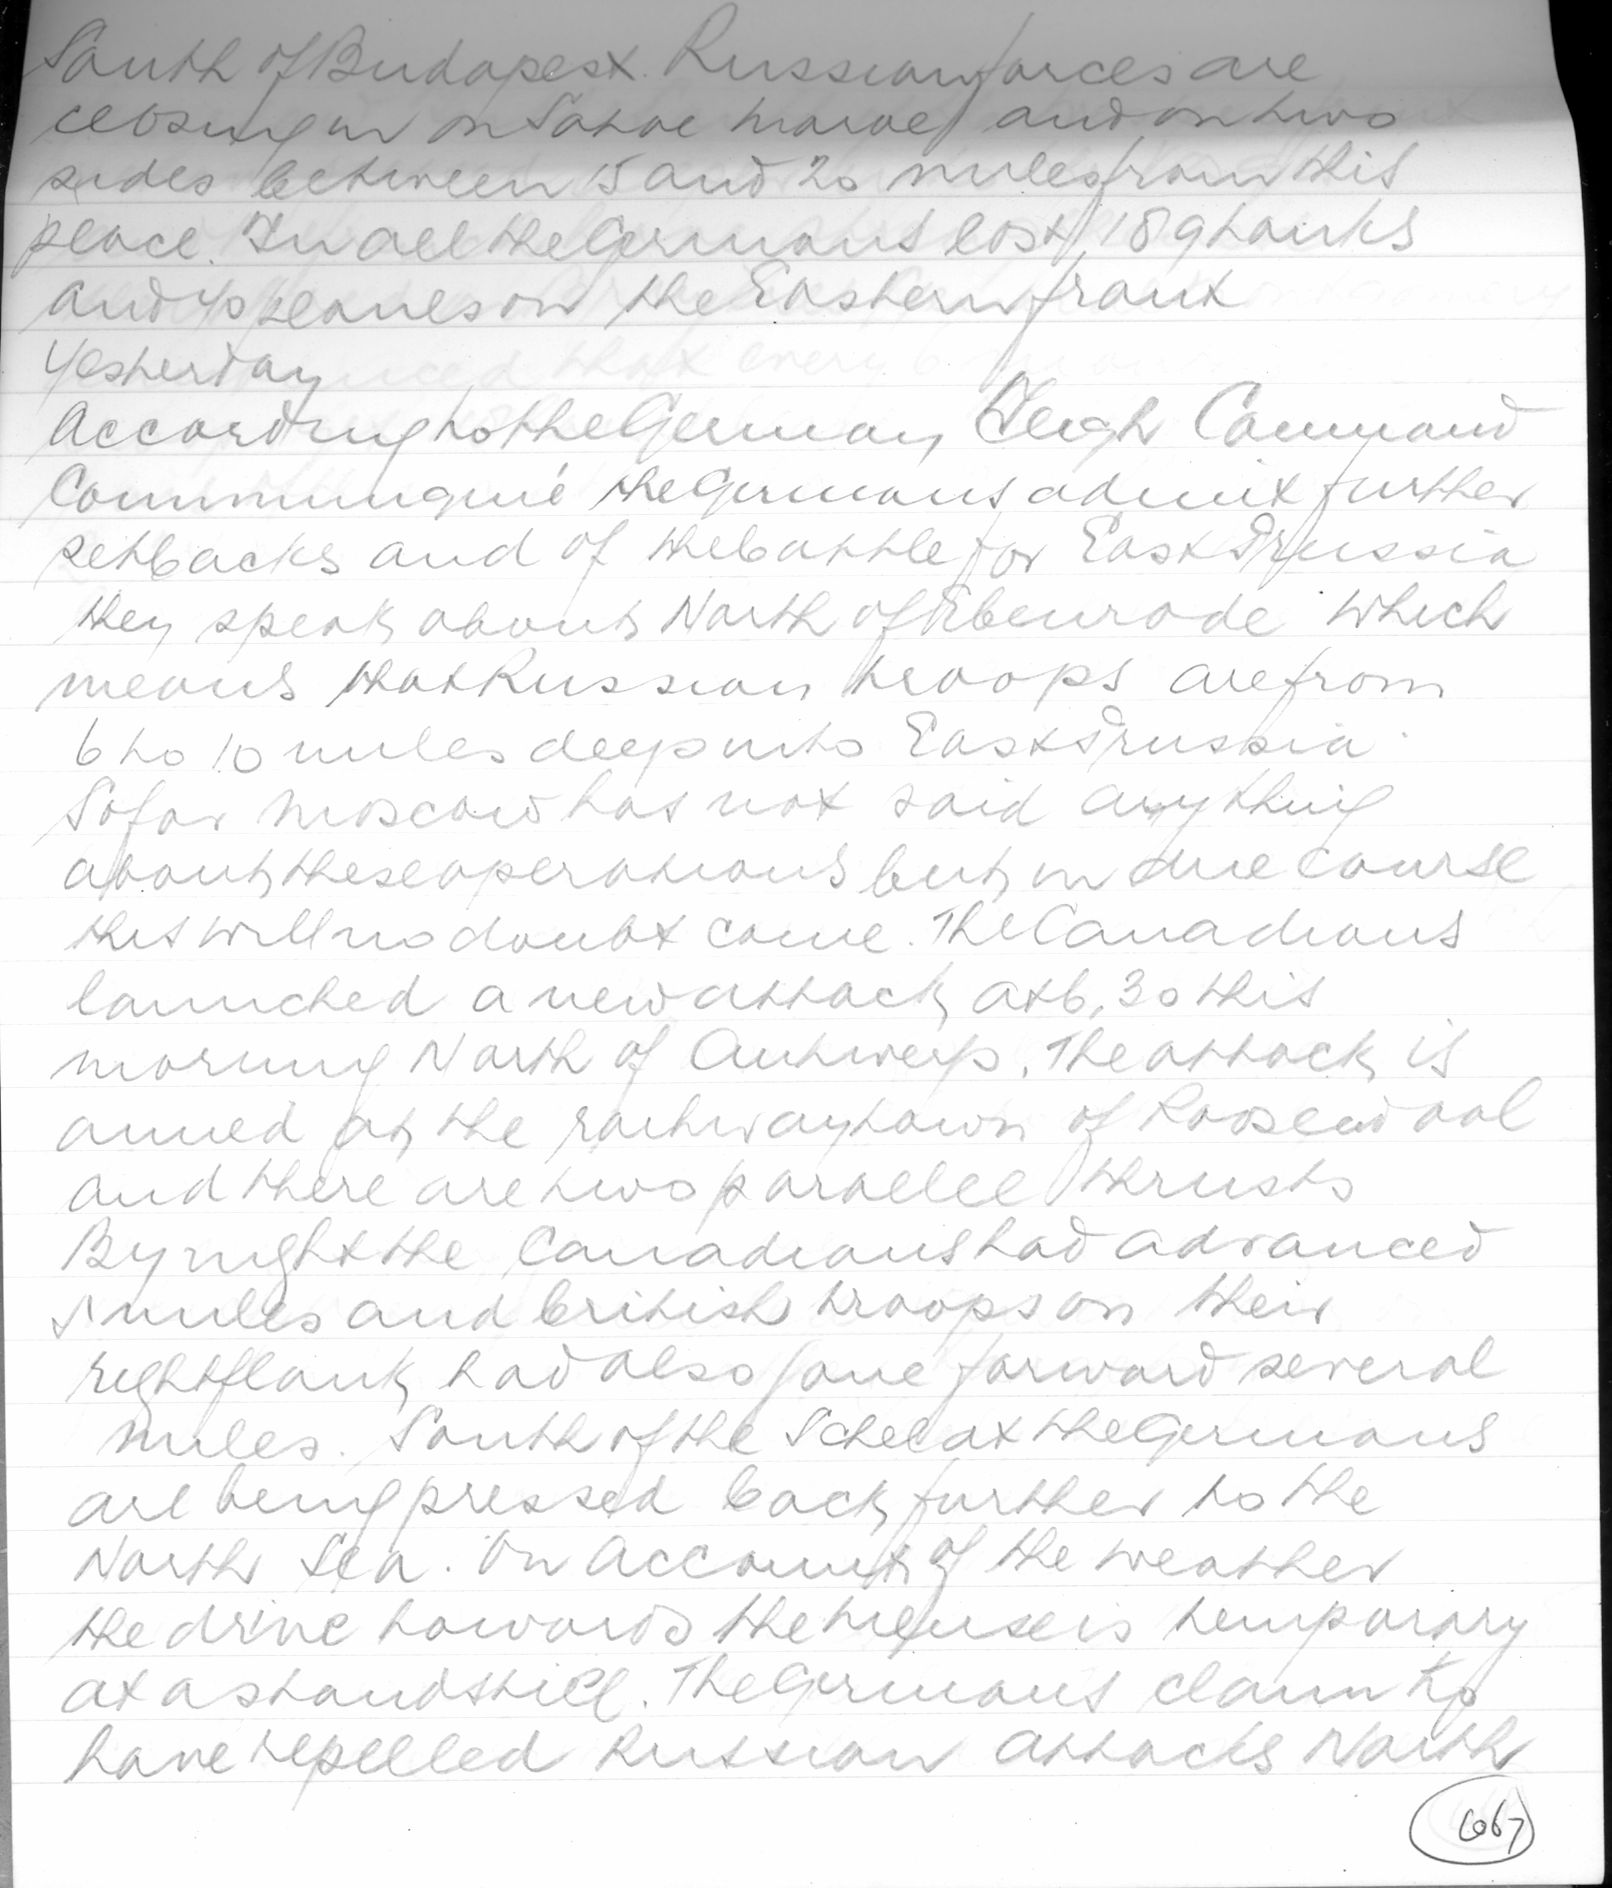 South of Budapest Russian forces are
closing in on Satoe marae and on two
sides between 15 and 20 miles from this
place. In all the Germans lost 189 tanks
and 40 planes on the Eastern front
yesterday
According to the German High Command
Communiqué the Germans admit further
setbacks and of the battle for East Prussia
they speak about North of Ebenrode which
means that Russian troops are from
6 to 10 miles deep into East Prussia.
So far Moscow has not said anything
about these operations but in due course
this will no doubt come. The Canadians
launched a new attack at 6,30 this
morning North of Antwerp. The attack is
aimed at the railway town of Roosendaal
and there are two paraellel thrusts
By night the Canadians had advanced
5 miles and british troops on their
right flank had also gone forward several
miles. South of the Scheldt the Germans
are being pressed back further to the
North Sea. On account of the weather
the drive towards the Meuse is temporary
at a standstill. The Germans claim to
have repelled Russian attacks North
667